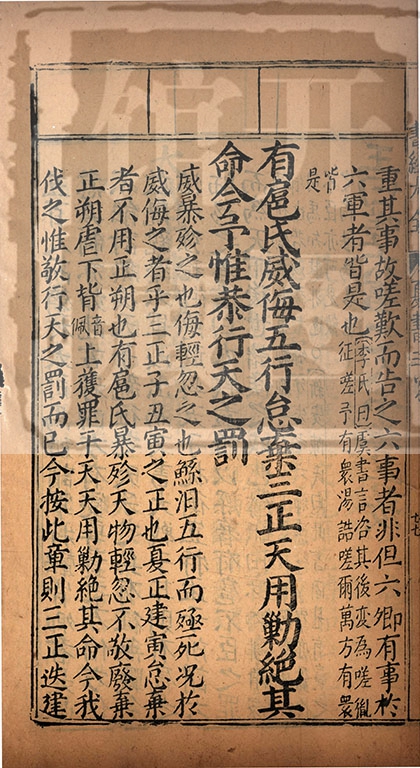 重其事故嗟歎而告之六事者非但六卿有事於
六軍者皆是也李氏曰虞書言咨其後變為嗟胤
征嗟予有衆湯誥嗟爾萬方有衆
皆
是
有扈氏威侮五行怠棄三正天用勦絶其
命今予惟恭行天之罰
威暴殄之也侮輕忽之也鯀汩五行而殛死况於
威侮之者乎三正子丑寅之正也夏正建寅怠棄
者不用正朔也有扈氏暴殄天物輕忽不敬廢棄
正朔虐下背音佩上獲罪于天天用勦絶其命今我
伐之惟敬行天之罰而已今按此章則三正迭建